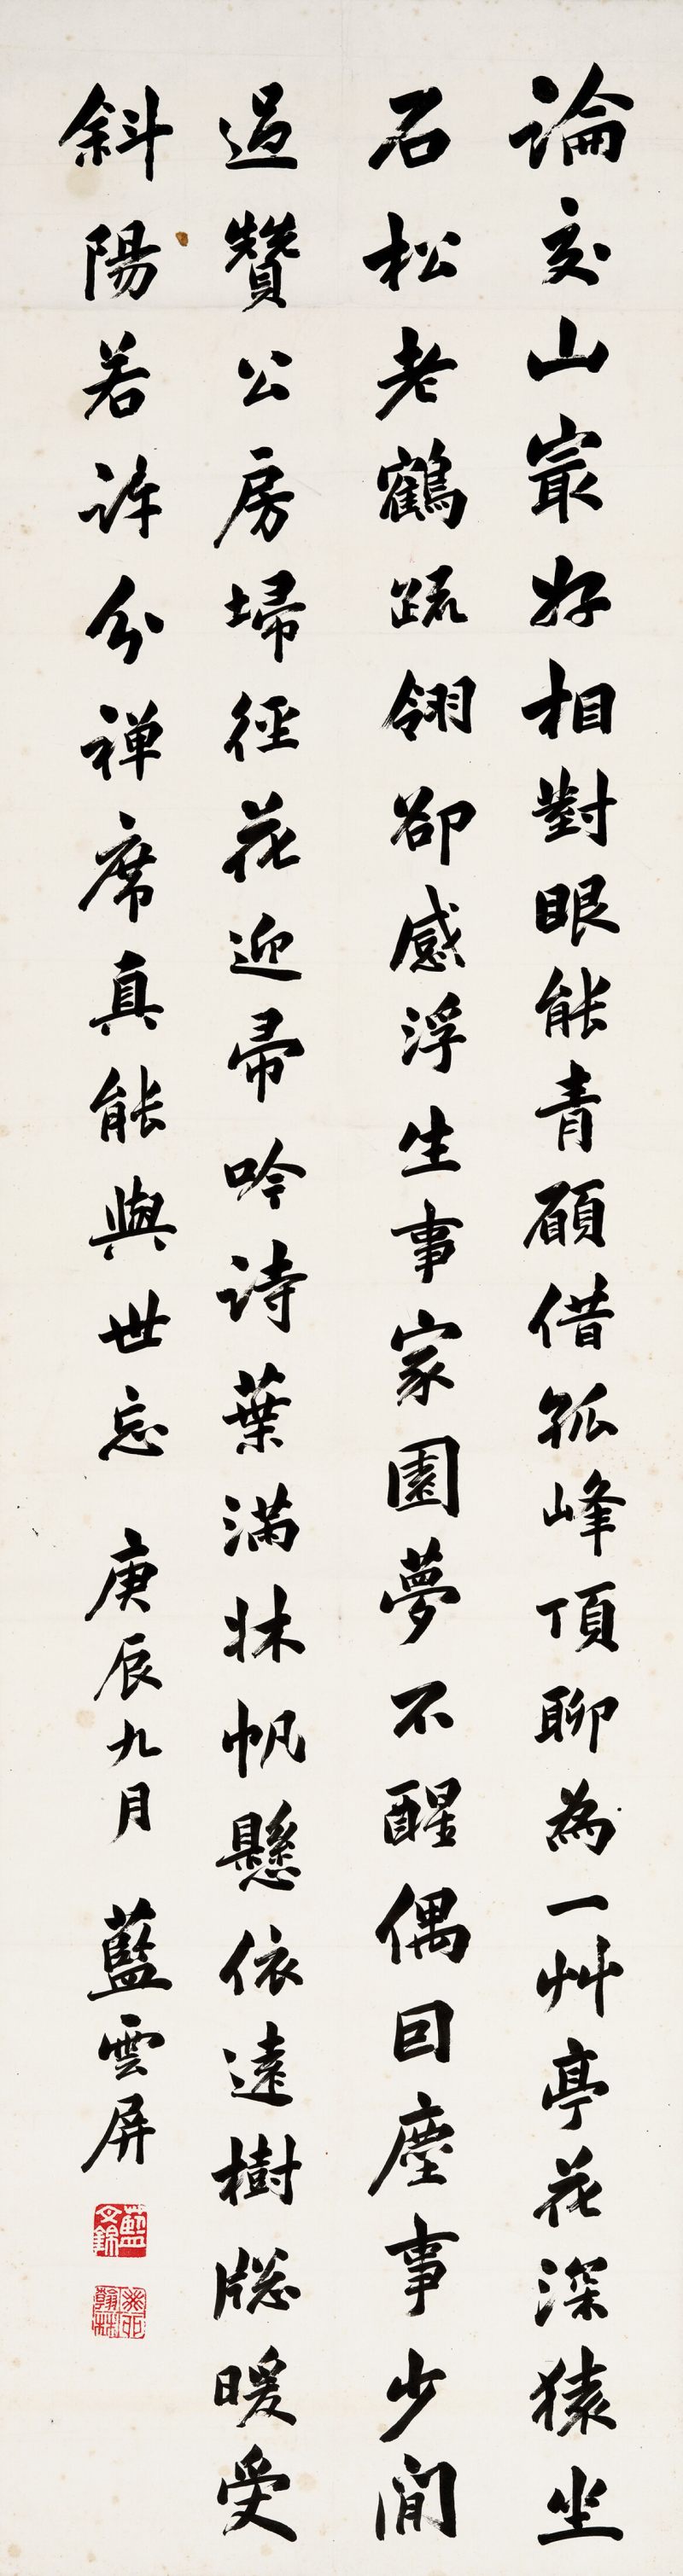 論交山冣好相對眼能青願借孤峰頂聊為一艸亭花深猿坐
石松老鶴疏翎卻感浮生事家園夢不醒偶回塵事少閒
過贊公房埽徑花迎帚吟詩葉滿牀帆懸依遠樹牕暖受
斜陽若許分禅席真能與世忘
庚辰九月 藍雲屏
藍文錦